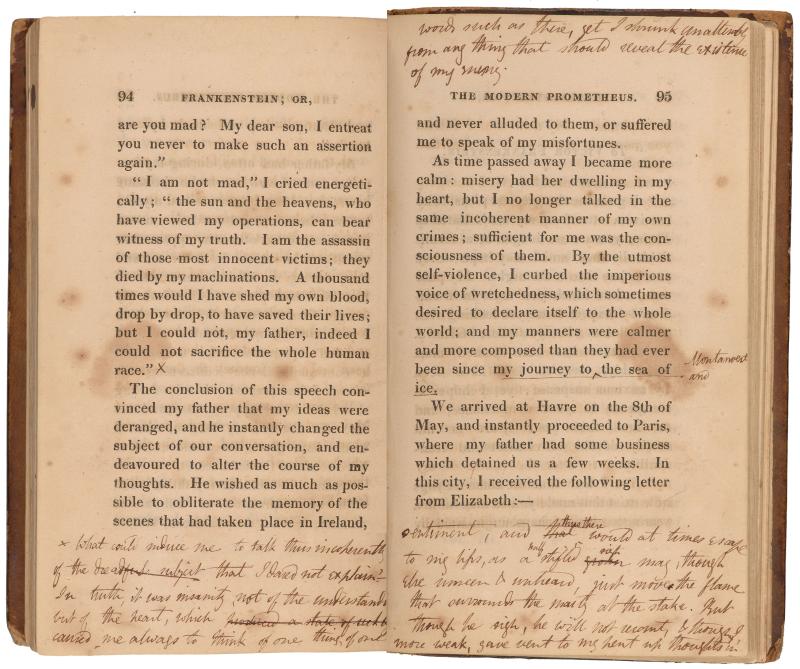 94 FRANKENSTEIN; OR,
are you mad? My dear son, I entreat
you never to make such an assertion
again."
"I am not mad," I cried energeti-
cally; "the sun and the heavens, who
have viewed my operations, can bear
witness of my truth. I am the assassin
of those most innocent victims; they
died by my machinations. A thousand
times would I have shed my own blood,
drop by drop, to have saved their lives;
but I could not, my father, indeed I
could not sacrifice the whole human
race." X
The conclusion of this speech con-
vinced my father that my ideas were
deranged, and he instantly changed the
subject of our conversation, and en-
deavoured to alter the course of my
thoughts. He wished as much as pos-
sible to obliterate the memory of the
scenes that had taken place in Ireland,
x What could induce me to talk thus incoherently
of the dreadful subject that I dared not explain?
In truth it was insanity, not of the understandi
but of the heart, which produced a state of
caused me always to think of one thing, of one
words such as these, yet I shrunk
from any thing that should reveal the existence
of my enemy.
THE MODERN PROMETHEUS. 95
and never alluded to them, or suffered
me to speak of my misfortunes.
As time passed away I became more
calm: misery had her dwelling in my
heart, but I no longer talked in the
same incoherent manner of my own
crimes; sufficient for me was the con-
sciousness of them. By the utmost
self-violence, I curbed the imperious
voice of wretchedness, which sometimes
desired to declare itself to the whole
world; and my manners were calmer
and more composed than they had ever
been since my journey to ‸ the sea of
Montanvert
and
ice.
We arrived at Havre on the 8th of
May, and instantly proceeded to Paris,
where my father had some business
which detained us a few weeks. In
this city, I received the following letter
from Elizabeth:—
sentiment, and would at times escape
to my lips, as a half stifled may, though
else unseen & unheard, just move the flame
that surrounds the martyr at the stake. But
though he sigh, he will not recant, & though I
more weak, gave vent to my pent up thoughts in